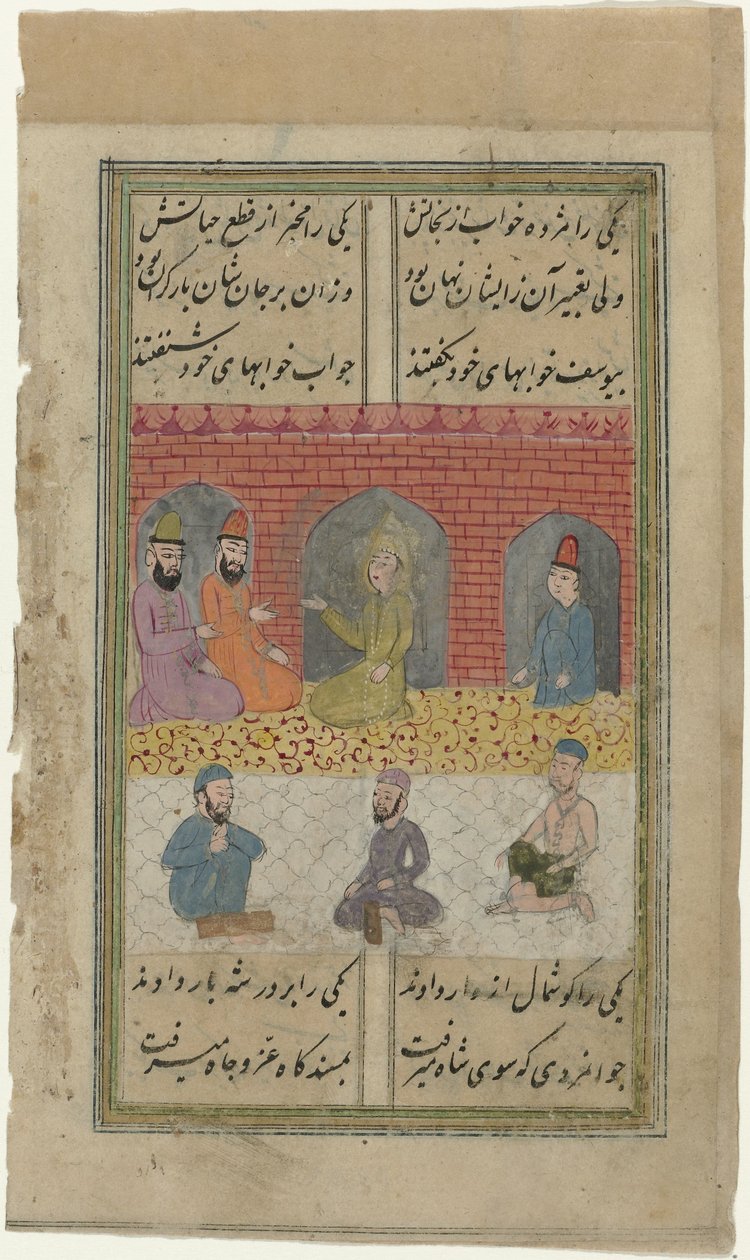 یکی را مژده خواب از نجاتش یکی را مخبر از قطع حیاتش
ولی تعبیر آن زایشان نهان بود وزان بر جان شان بار گران بود
بیوسف خوابهای خود بگفتند جواب خوابهای خود شنفتند
یکی را گوشمال از دار دادند یکی را بر در شه بار دادند
جوانمردی که سوی شاه میرفت بمسند گاه عز و جاه میرفت